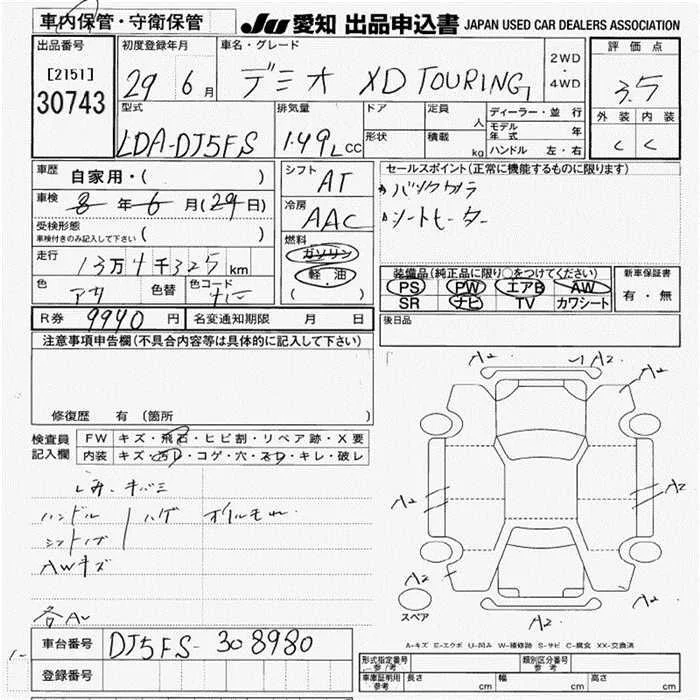 車内保管・守衛保管
JU 愛知 出品申込書 JAPAN USED CAR DEALERS ASSOCIATION
出品番号
[2151]
30743
初度登録年月
29 6月
車名・グレード
デミオ XD TOURING
2WD
・
4WD
評価点
3.5
外装 内装
C C
型式
LDA-DJ5FS
排気量
1.49L CC
ドア
形状
定員 人
積載 kg
ディーラー・並行
モデル年式 年
ハンドル 左・右
車歴 自家用・( )
車検 8年6月(29日)
受検形態
車検付きのみ記入して下さい ( )
走行
13万4千325km
色 色替 色コード
シフト
AT
冷房
AAC
燃料
ガソリン
軽・油
( )
セールスポイント(正常に機能するものに限ります)
バックカメラ
シートヒーター
装備品(純正品に限り○をつけてください)
PS PW エアB AW
SR ナビ TV カワシート
新車保証書
有・無
R券 9940円 名変通知期限 月 日
後日品
注意事項申告欄(不具合内容等は具体的に記入して下さい)
修復歴 有 (箇所
検査員
記入欄
FW キズ・飛石・ヒビ割・リペア跡・X要
内装 キズ・汚レ・コゲ・穴・スレ・キレ・破レ
シミ・キバミ
ハンドル ハゲ オイルモレ
シフトノブ
AWキズ
各A
A2 A2 A2
A2 A2
A2 A2
A2
スペア
A-キズ E-エクボ U-凹み W-補修跡 S-サビ C-腐食 XX-交換済
車台番号 DJ5FS-308980
登録番号
形式指定番号
参考
類別区分番号
参考
車庫証明用
参考
長さ cm 幅 cm 高さ cm